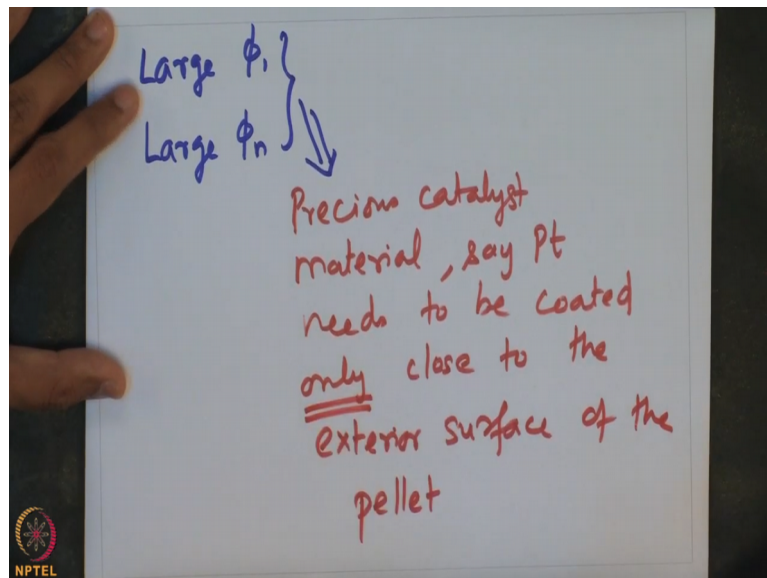 Large φ₁
Large φₙ
Precious catalyst
material, say Pt
needs to be coated
only close to the
exterior surface of the
pellet
NPTEL